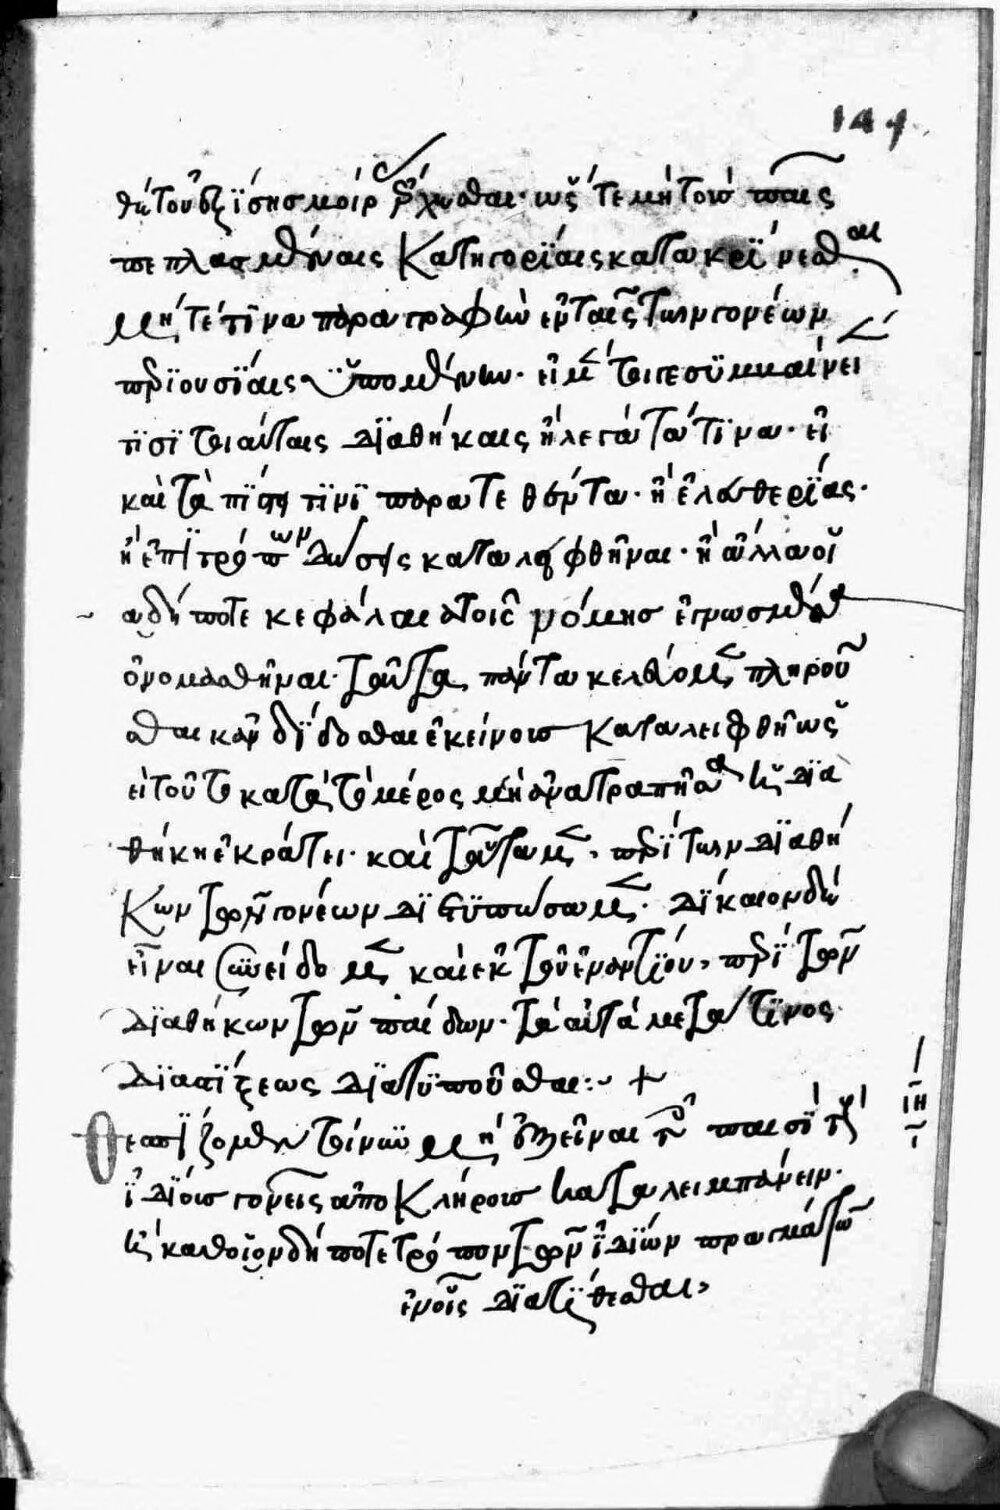 144
θη τοῦ ἐξ ἴσης μοίρ ἔρχεσθαι· ὥστε μήτοι παῖς
πεπλασμέναις κατηγορίαις κατακρίνεσθαι
μήτέ τινα παραγραφὴν ἐν ταῖς τῶν γονέων
περιουσίαις ὑπομένειν· εἰ μέν τοί γε συμβαίνει
τισὶ τοιαύταις διαθήκαις ἢ λεγάτα τινα· εἲ
καὶ τὰ πίστει τινὶ παρατεθέντα· ἢ ἐλευθερίας·
ἢ ἐπιτρόπων δόσεις καταλειφθῆναι· ἢ ἄλλα οἱ
αδήποτε κεφάλαια τοῖς νόμοις ἐγνωσμένα
ὀνομασθῆναι· ταῦτα πάντα κελεύομεν πληροῦ
σθαι καὶ δίδοσθαι ἐκείνοις καταλειφθῆ ὡς
εἰ τοῦτο κατὰ τὸ μέρος μὴ ἀνατραπῆσα ἡ δια
θήκη ἐκράτει· καὶ ταῦτα μὲν, περὶ τῶν διαθη
κῶν τῶν γονέων διετυπώσαμεν· δίκαιον δὲ
εἶναι συνείδομεν καὶ ἐκ τοῦ ἐναντίου, περὶ τῶν
διαθηκῶν τῶν παίδων· τὰ αὐτὰ μετά τινος
διατάξεως διατυποῦσθαι:~ +
ιη
Θεσπίζομεν τοίνυν μὴ ἐξεῖναι τοῖς παισὶ τοὺς
ἰδίους γονεῖς ἀπὸ κλήροις καταλειμπάνειν·
ἢ καθοῖον δήποτε τρόπον τῶν ἰδίων πραγμάτων
ἐν οἷς διατίθεσθαι,